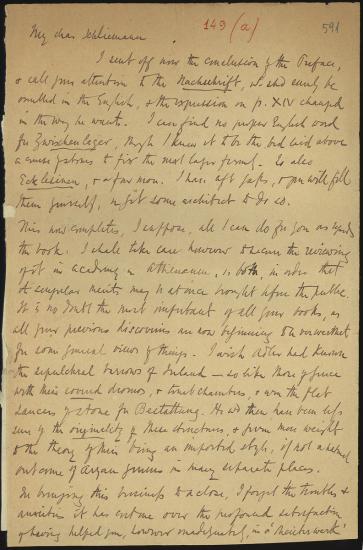 149 (a)
591
My dear Schliemann
I sent off now the conclusion of the Preface,
& call your attention to the Nachschrift, wh shd surely be
omitted in the English, & the expression on p. XIV changed
in the way he wants. I can find no proper English word
for Zwischenlager, though I know it to be the bed laid above
a course of stones to fix the next layer firmly. So also
& a few more. I have left gaps, & you will fill
them yourself, or get some architect to do so.
This now completes, I suppose, all I can do for you as regards
the book. I shall take care however to secure the reviewing
of it in Academy & Athenaeum, in both, in order that
its merits may be at once brought before the public.
It is no doubt the most important of all your books, as
all your previous discoveries are now beginning to be
for some general views of things. I wish Adler had known
the sepulchral barrows of Ireland — so like those of Greece
with their dromos, & tomb chambers, & even the flat
of stone for Bestattung. He wd then have been less
sure of the originality of these structures, & given more weight
to the theory of their being an imported style, if not a natural
outcome of Aryan genius in many separate places.
In bringing this business to a close, I forget the troubles &
anxieties it has cost me over the profound satisfaction
of having helped you, however inadequately, in a 'Meisterwerk'